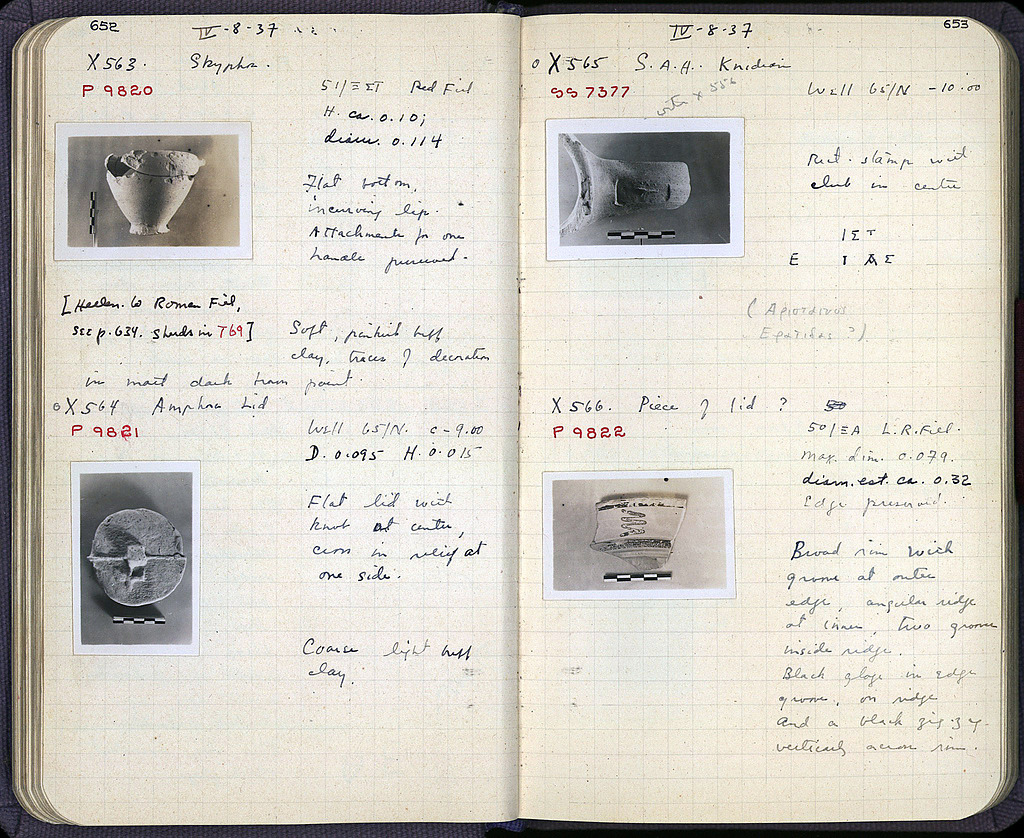 652
IV-8-37
X 563. Skyphos.
P 9820
51/ΞΣΤ Red Fill
H. ca. 0.10;
diam. 0.114
Flat bottom,
incurving lip.
Attachments for one
handle preserved.
[Hellen. to Roman Fill,
see p. 634. Sherds in T69]
Soft, pinkish buff
clay, traces of decoration
in matt dark brown paint.
o X 564 Amphora Lid
P 9821
Well 65/N. c -9.00
D. 0.095 H. 0.015
Flat lid with
knob at center,
cross in relief at
one side.
Coarse light buff
clay.
653
IV-8-37
o X 565 S.A.H. Knidian
SS 7377
with X 556
Well 65/N -10.00
Rect. stamp with
club in centre
ΙΣΤ
Ε Ι ΑΣ
(Αριστεινος
Ερατιδας?)
X 566. Piece of lid?
P 9822
50/ΞΑ L.R. Fill.
max. dim. 0.079.
diam. est. ca. 0.32
Edge preserved.
Broad rim with
groove at outer
edge, angular ridge
at inner, two grooves
inside ridge.
Black glaze in edge
groove, on ridge
and a black zig-zag
vertically across rim.